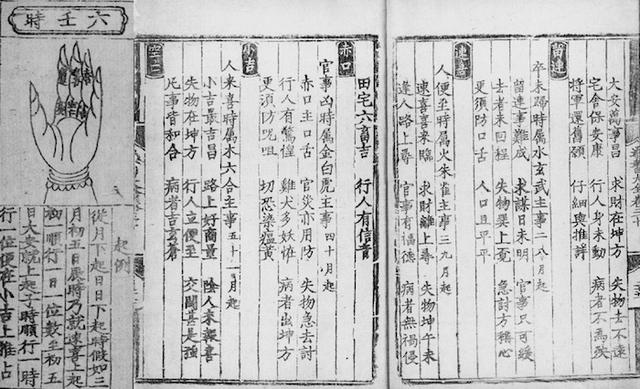 六壬時
起例
從月下起日日下起時假如三
月初五日辰時乃就速喜上起
初一順行一日一位數至初五
日大安就上起子時順行一時
行一位便在小吉上推占
大安萬事昌 求財在坤方 失物去不遠
宅舍保安康 行人身未動 病者不為殃
將軍還舊願 仔細與推詳
留連
卒未歸時屬水玄武主事二八月起
留連事難成 求謀日未明 官事只可緩
去者未回程 失物巽上覓 急討方稱心
更須防口舌 人口且平平
速喜
人便至時屬火朱雀主事三九月起
速喜喜來臨 求財離上尋 失物坤午未
逢人路上尋 官事有福德 病者無禍侵
田宅六畜吉 行人有信音
赤口
官事凶時屬金白虎主事四十月起
赤口主口舌 官災亦用防 失物急去討
行人有驚惶 雞犬多妖怪 病者出坤方
更須防咒咀 切恐染瘟黄
小吉
人來喜時屬木六合主事五十一月起
小吉最吉昌 路上好商量 陰人來報喜
失物在坤方 行人立便至 交關甚是強
凡事皆和合 病者告穹蒼
空亡